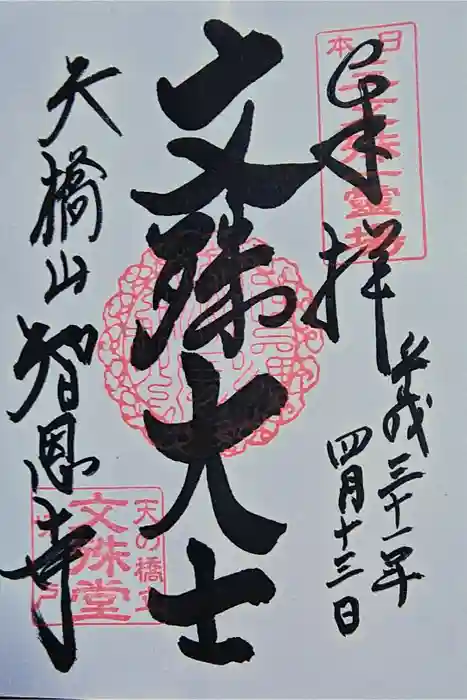 奉拝
平成三十一年
四月十三日
日本三文殊一霊場
文殊大士
天橋山智恩寺
天の橋立
文殊堂